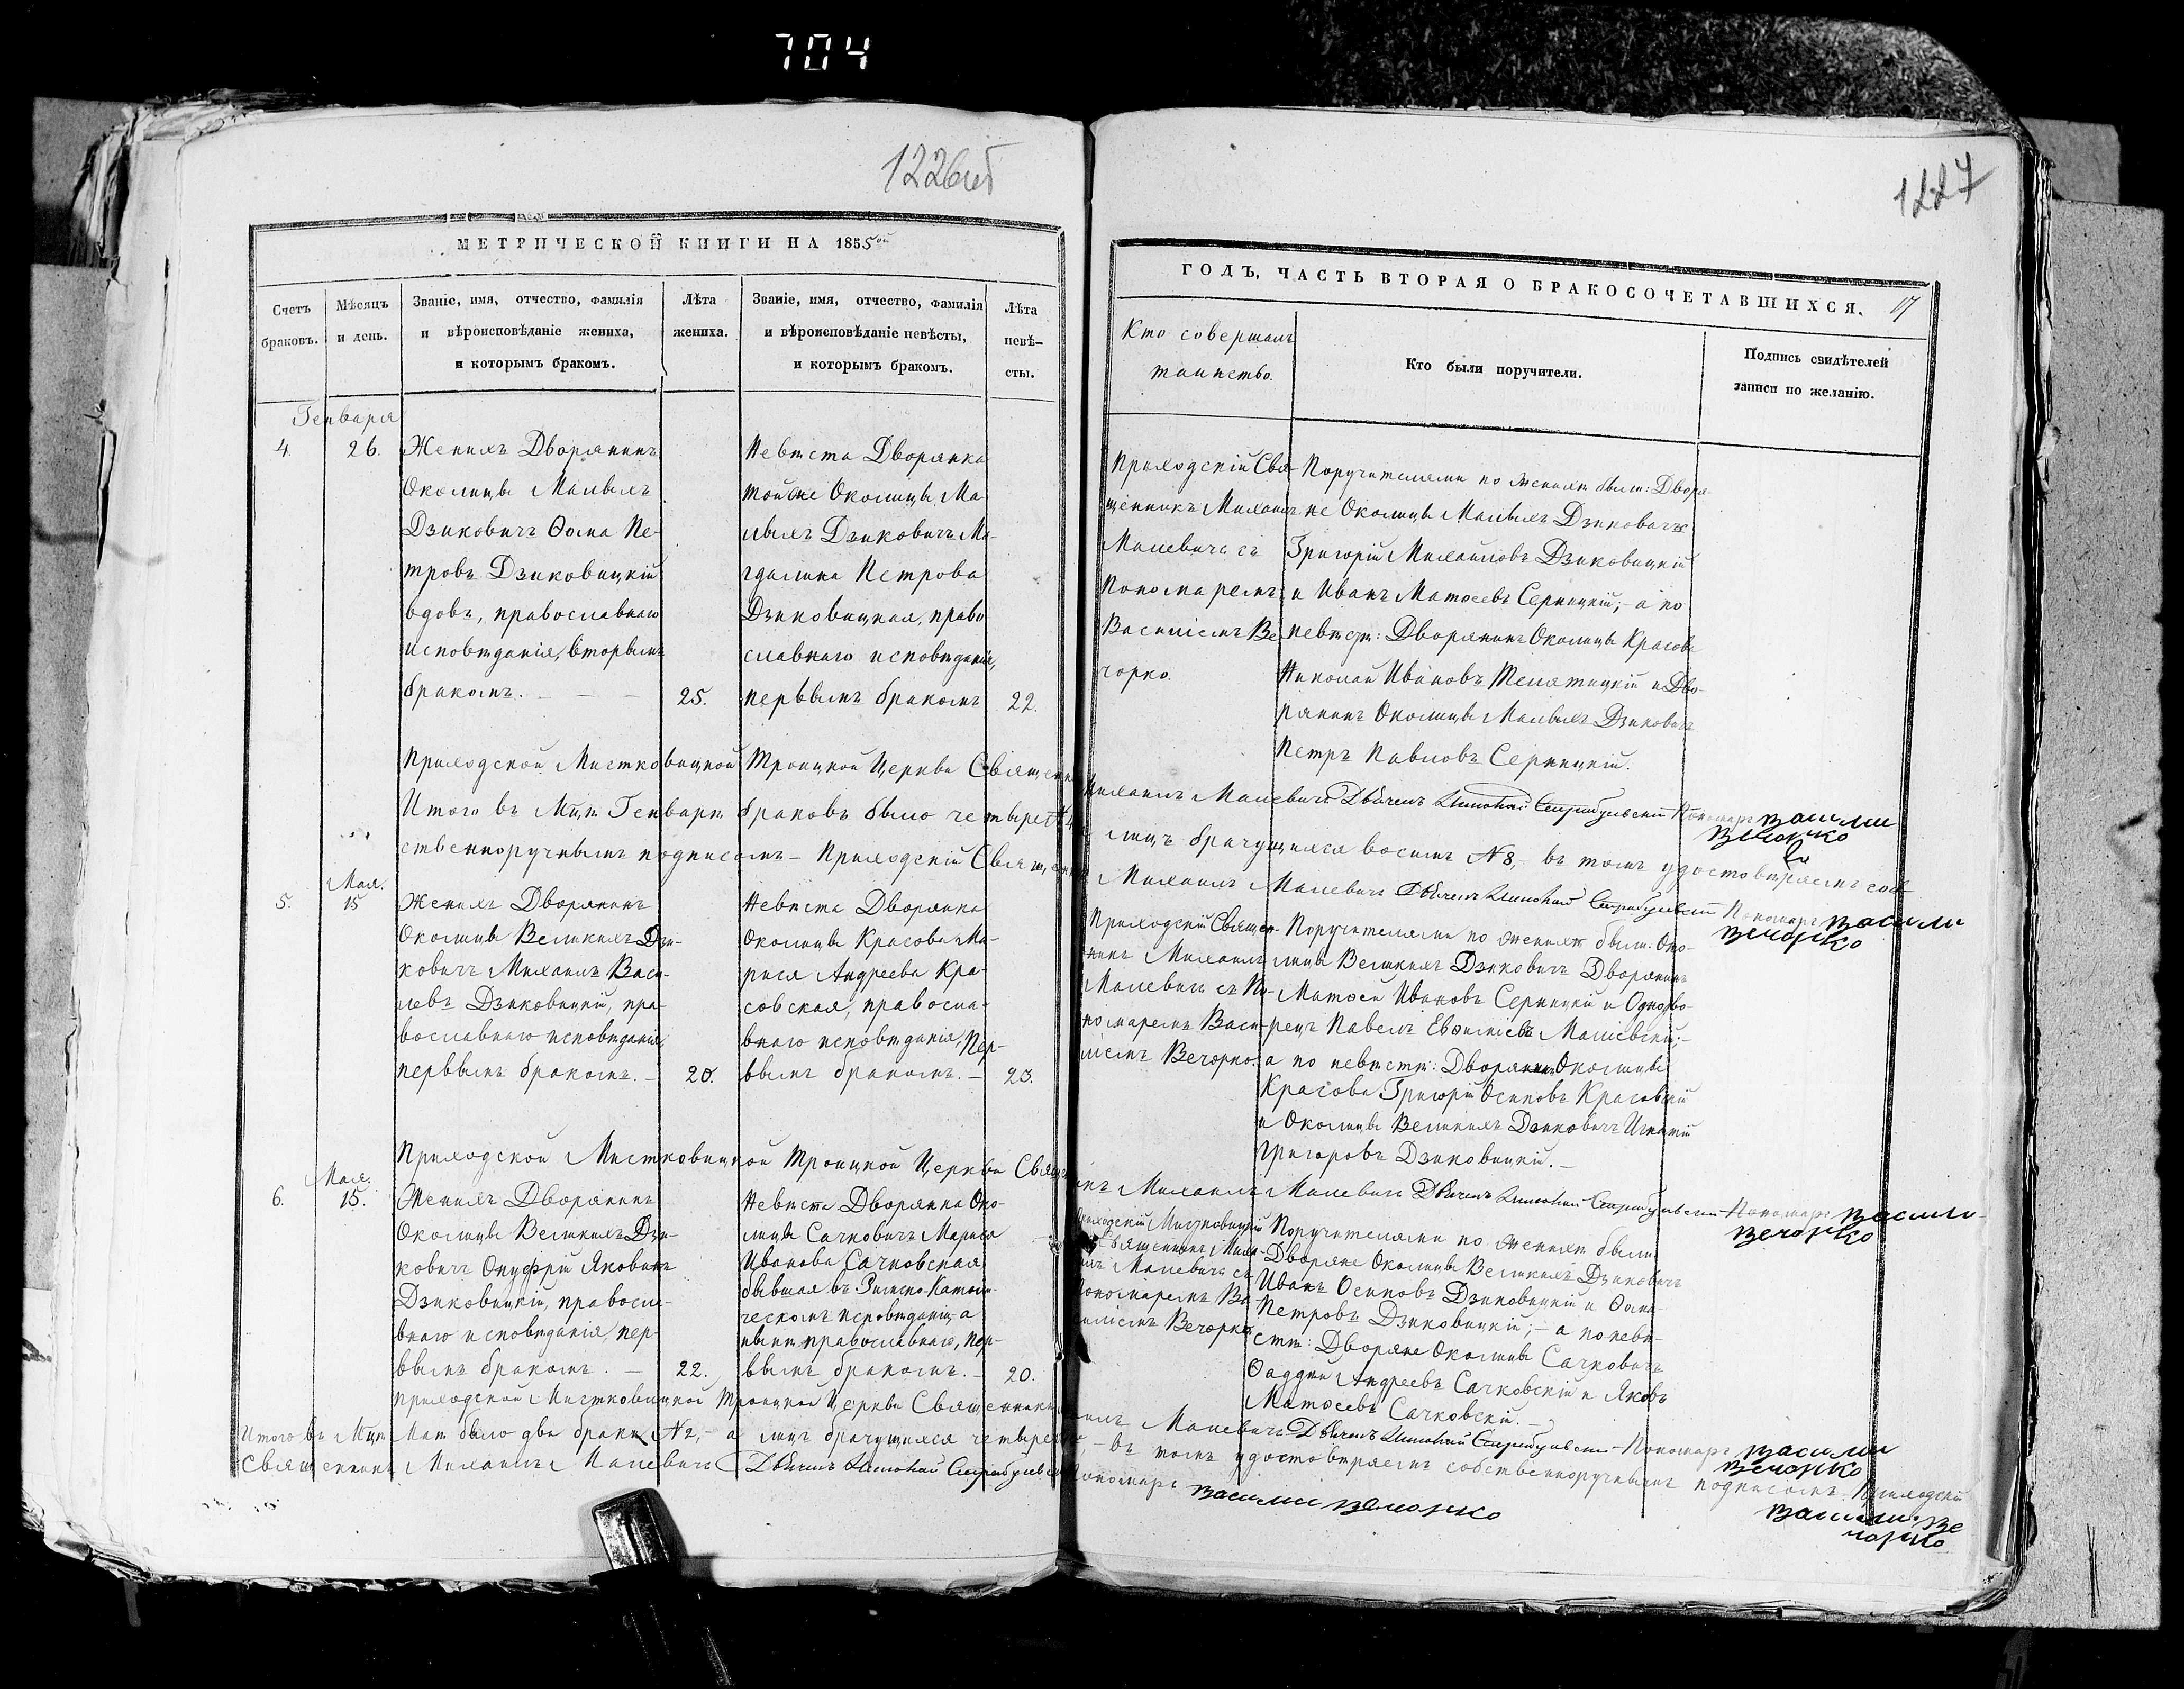 704
1226об
1227
МЕТРИЧЕСКОЙ КНИГИ НА 1855ой
ГОДЪ, ЧАСТЬ ВТОРАЯ О БРАКОСОЧЕТАВШИХСЯ.
Счетъ
браковъ.
Мѣсяцъ
и день.
Званіе, имя, отчество, фамилія
и вѣроисповѣданіе жениха,
и которымъ бракомъ.
Лѣта
жениха.
Званіе, имя, отчество, фамилія
и вѣроисповѣданіе невѣсты,
и которымъ бракомъ.
Лѣта
невѣ-
сты.
Кто совершалъ
таинство.
Кто были поручители.
Подпись свидѣтелей
записи по желанію.
Генваря
4.
26.
Женихъ Дворянинъ
Околицы Малыхъ
Дзиковичъ Ѳома Пе-
тровъ Дзиковицкій
вдовъ, православнаго
исповѣданія, вторымъ
бракомъ.
25.
Невѣста Дворянка
той же Околицы Ма
лыхъ Дзиковичъ Ма-
гдалина Петрова
Дзиковицкая, право
славнаго исповѣданія,
первымъ бракомъ
22.
Приходскій Свя-
щенникъ Михаилъ
Малевичъ съ
Пономаремъ
Василіемъ Ве
чорко.
Поручителями по женихѣ были: Дворя-
не Околицы Малыхъ Дзиковичъ
Григорій Михайловъ Дзиковицкій
и Иванъ Матѳеевъ Серницкій; а по
невѣстѣ: Дворянинъ Околицы Красова
Николай Ивановъ Телятицкій и Дво-
рянинъ Околицы Малыхъ Дзиковичъ
Петръ Павловъ Серницкій.
Приходской Мистковицкой Троицкой Церкви Священникъ Михаилъ Малевичъ Дьячекъ Пономарь Василий
Вечорко
Итого въ Мцѣ Генварѣ браковъ было четыре №4, лицъ брачущихся восемь №8, въ томъ удостовѣряемъ соб
ственноручнымъ подписомъ - Приходскій Священникъ Михаилъ Малевичъ Дьячекъ Пономарь Василий
Вечорко
5.
Мая.
15
Женихъ Дворянинъ
Околицы Великихъ Дзи-
ковичъ Михаилъ Васи-
левъ Дзиковицкій, пра-
вославнаго исповѣданія,
первымъ бракомъ. -
20.
Невѣста Дворянка
Околицы Красова Ма-
рися Андреева Кра-
совская, правосла-
внаго исповѣданія, пер-
вымъ бракомъ. -
23.
Приходскій Священ-
никъ Михаилъ
Малевичъ съ По-
номаремъ Васи-
ліемъ Вечорко.
Поручителями по женихѣ были: Око-
лицы Великихъ Дзиковичъ Дворянинъ
Матѳей Ивановъ Серницкій и Однодво-
рецъ Павелъ Евѳиміевъ Малѣвскій; -
а по невѣстѣ: Дворянинъ Околицы
Красова Григорій Осиповъ Красовскій
и Околицы Великихъ Дзиковичъ Игнатій
Григоровъ Дзиковицкій. -
Приходской Мистковицкой Троицкой Церкви Священникъ Михаилъ Малевичъ Дьячекъ Пономарь Василий
Вечорко
6.
Мая.
15.
Женихъ Дворянинъ
Околицы Великихъ Дзи-
ковичъ Онуфрій Яковлевъ
Дзиковицкій, правосла-
внаго исповѣданія, пер-
вымъ бракомъ. -
22.
Невѣста Дворянка Око-
лицы Сачковичъ Марися
Иванова Сачковская
бывшая въ Римско-Католи-
ческомъ исповѣданіи, а
нынѣ православнаго, пер-
вымъ бракомъ. -
20.
Приходскій Мистковицкій
Священникъ Миха-
илъ Малевичъ съ
Пономаремъ Ва-
силіемъ Вечорко
Поручителями по женихѣ были
Дворяне Околицы Великихъ Дзиковичъ
Иванъ Осиповъ Дзиковицкій и Ѳома
Петровъ Дзиковицкій; - а по невѣ-
стѣ: Дворяне Околицы Сачковичъ
Ѳаддей Андреевъ Сачковскій и Яковъ
Матѳеевъ Сачковскій. -
Приходской Мистковицкой Троицкой Церкви Священникъ Михаилъ Малевичъ Дьячекъ Пономарь Василий
Вечорко
Итого въ Мцѣ Маѣ было два брака №2, - а лицъ брачущихся четыре - въ томъ удостовѣряемъ собственноручнымъ подписомъ. Приходскій
Священникъ Михаилъ Малевичъ Дьячекъ Пономарь Василий Вечорко
Василий Ве
чорко